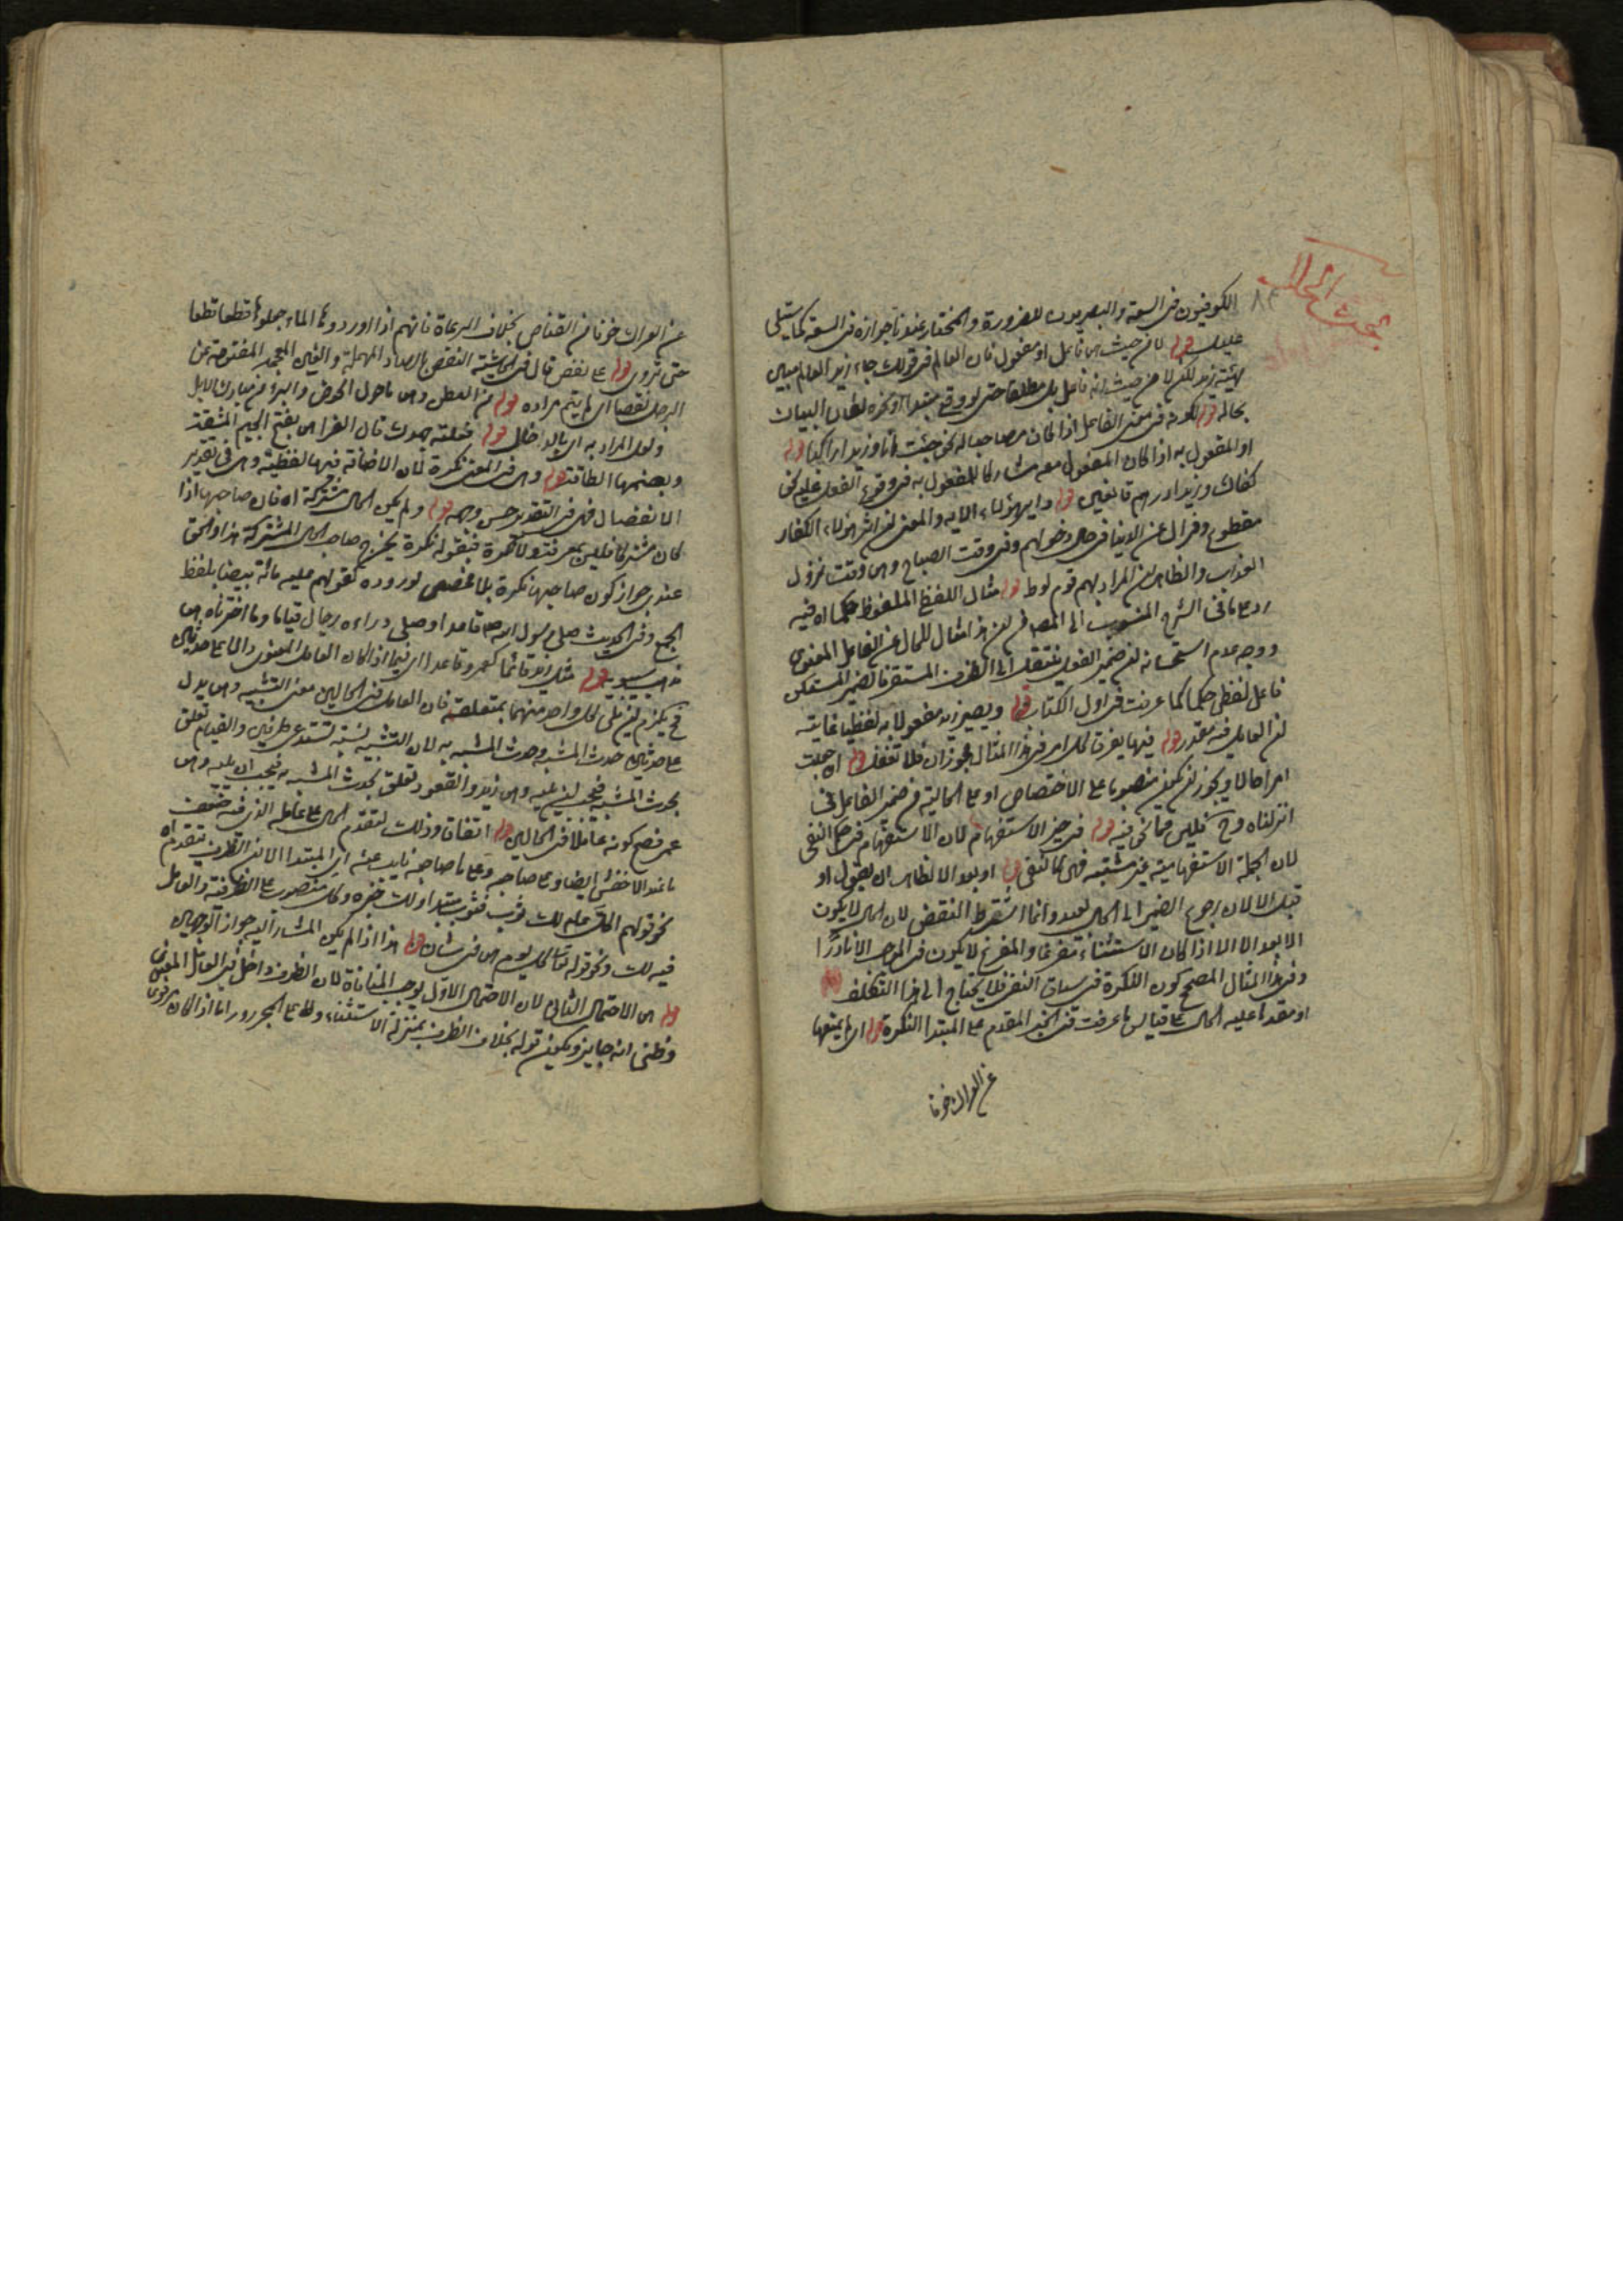 بحث الحال
٨٤
الكوفيون في السعة والبصريون للضرورة والمختار عندنا جوازه في السعة كما سيتلى
عليك قوله لا من حيث هو فاعل او مفعول فان العالم في قولك جاء زيد العالم مبين
لهيئة زيد لكن لا من حيث انه فاعل بل مطلقا حتى لو وقع مبتدأ او غيره لكان البيان
بحاله قوله لكونه في معنى الفاعل اذا كان مصاحبا له نحو جئت انا وزيدا راكبا قوله
او المفعول به اذا كان المفعول معه مشاركا للمفعول به في وقوع الفعل عليه نحو
كفاك وزيدا درهم قوله دابر هؤلاء الاية والمعنى ان اثر هؤلاء الكفار
مقطوع وفي وقت الصباح وهو وقت نزول
العذاب والظاهر ان المراد بهم قوم لوط قوله مثال اللفظ الملفوظ حكما اه فيه
رد على ما في الشرح المنسوب الى المصنف من ان هذا مثال للحال عن الفاعل المعنوي
ووجه عدم استحسانه ان ضمير الفعل ينتقل الى الظرف المستقر فالضمير المستكن
فاعل لفظي حكما كما عرفت في اول الكتاب قوله ويصير زيد مفعولا به لفظيا غايته
ان العامل فيه مقدر قوله فيها يفرق كل امر في هذا المثال مجوزان فلا تغفل قوله اه جعلت
امرا حالا ويجوز ان يكون منصوبا على الاختصاص او على الحالية من ضمير الفاعل في
انزلناه وح فليس مما نحن فيه قوله في حيز الاستفهام لان الاستفهام في حكم النفي
لان الجملة الاستفهامية غير مثبتة فهي كالنفي قوله او بعد الا الظاهر ان يقول او
قبل الا لان رجوع الضمير الى الحال بعيد وانما اشترط النقض لان الحال لا يكون
الا بعد الا الا اذا كان الاستثناء مفرغا والمفرغ لا يكون في الموجب الا نادرا
وفي هذا المثال المصحح كون النكرة في سياق النفي فلا يحتاج الى هذا التكلف قوله
او مقدما عليه الحال على قياس ما عرفت في الخبر المقدم على المبتدا النكرة قوله اي لم يمنعها
عن العراك خوفا
عن العراك خوفا من القناص بخلاف الرعاة فانهم اذا اوردوها الماء جعلوها قطعا قطعا
حتى تروى قوله على نغض قال في الحاشية النغض بالصاد المهملة والغين المعجمة المفتوحة من
الرجل نغصا اي لم يتم مراده قوله من العطن وهو ما حول الحوض والبئر من مبارك الابل
ولعل المراد به اي بالدخال قوله فعلته جهدك قال الفراء هو بفتح الجيم المشقة
وبضمها الطاقة قوله وهو في المعنى نكرة لان الاضافة فيها لفظية وهو في تقدير
الانفصال فهي في التقدير حسن وجهه قوله ولم يكن الحال مشتركة اه فان صاحبها اذا
كان مشتركا فليس بمعرفة ولا نكرة فبقوله نكرة يخرج صاحب الحال المشتركة هذا والحق
عندي جواز كون صاحبها نكرة بلا مخصص لوروده كقولهم عليه مائة بيضا بلفظ
الجمع وفي الحديث صلى رسول الله ص قاعدا وصلى وراءه رجال قياما وما اخترناه هو
مذهب سيبويه قوله مثل زيد قائما كعمرو قاعدا اي فيما اذا كان العامل المعنوي دالا على حدثين
فح يلزم ان يلي كل واحد منهما بمتعلقه فان العامل في الحالين معنى التشبيه وهو يدل
على حدثين حدث المشبه وحدث المشبه به لان التشبيه نسبة تستدعي طرفين والقيام تعلق
بحدث المشبه فيجب ان يليه وهو زيد والقعود تعلق بحدث المشبه به فيجب ان يليه وهو
عمرو فصح كونه عاملا في الحالين قوله اتفاقا وذلك لتقدم الحال على عامله الذي فيه ضعف
ما عند الاخفش ايضا وعلى صاحبه وعلى ما صاحبه نايب عنه اي المبتدا الا في الظرف بتقديم اه
نحو قولهم اكل عام لك ثوب فثوب مبتدا ولك خبره وكل منصوب على الظرفية والعامل
فيه لك ونحو قوله تعالى كل يوم هو في شان قوله هذا اذا لم يكن المشار اليه جواز الوجهين
قوله هو الاحتمال الثاني لان الاحتمال الاول يوجب المنافاة لان الظرف داخل في العامل المعنوي
وظني انه جايز ويكون قوله بخلاف الظرف بمنزلة الاستثناء قوله ولا على المجرور اما اذا كان